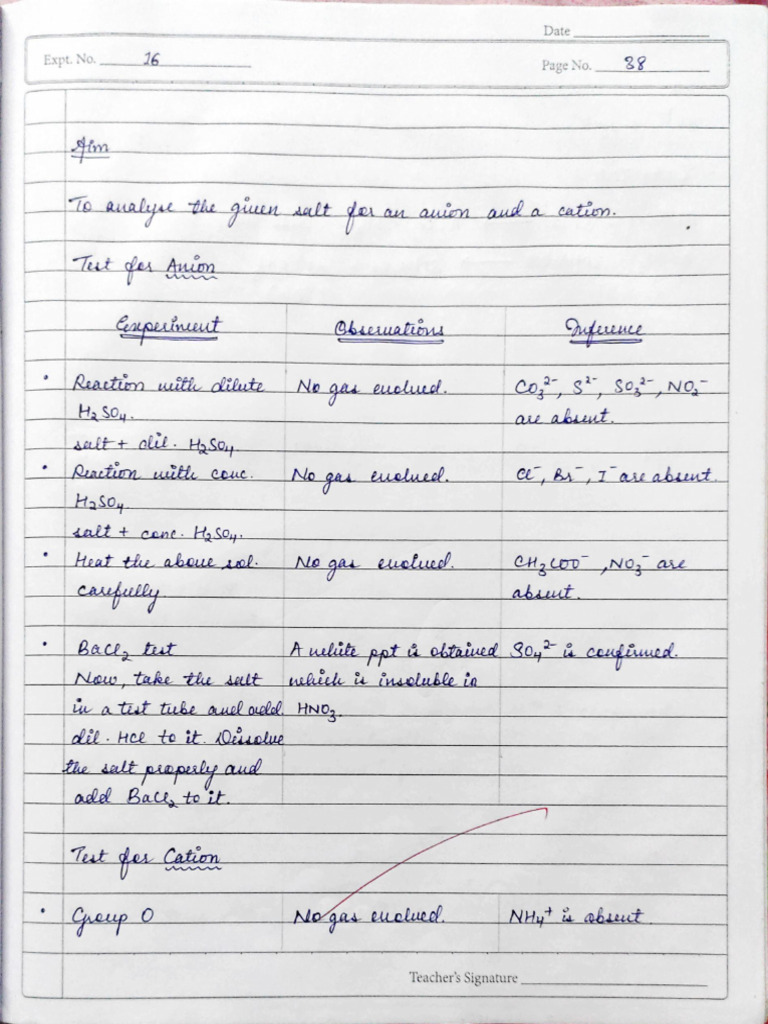 Date
Expt. No. 16
Page No. 38
Aim
To analyse the given salt for an anion and a cation.
Test for Anion
Experiment Observations Inference
• Reaction with dilute No gas evolved. CO₃²⁻, S²⁻, SO₃²⁻, NO₂⁻
H₂SO₄. are absent.
salt + dil. H₂SO₄.
• Reaction with conc. No gas evolved. Cl⁻, Br⁻, I⁻ are absent.
H₂SO₄.
salt + conc. H₂SO₄.
• Heat the above sol. No gas evolved. CH₃COO⁻, NO₃⁻ are
carefully absent.
• BaCl₂ test A white ppt is obtained SO₄²⁻ is confirmed.
Now, take the salt which is insoluble in
in a test tube and add HNO₃.
dil. HCl to it. Dissolve
the salt properly and
add BaCl₂ to it.
Test for Cation
• Group 0 No gas evolved. NH₄⁺ is absent.
Teacher's Signature